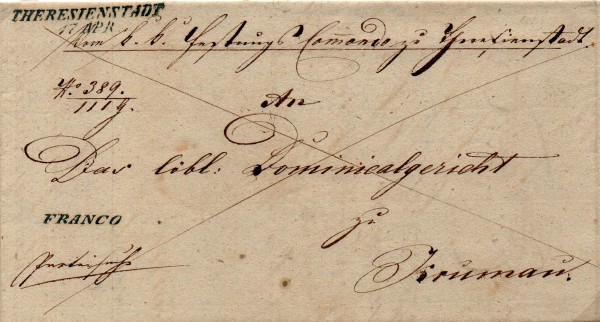 THERESIENSTADT
17 APR
Vom k. k. Festungs Commando zu Theresienstadt.
No. 389.
1119.
An
Das löbl: Dominicalgericht
FRANCO
zu
Parteisache
Krumau.